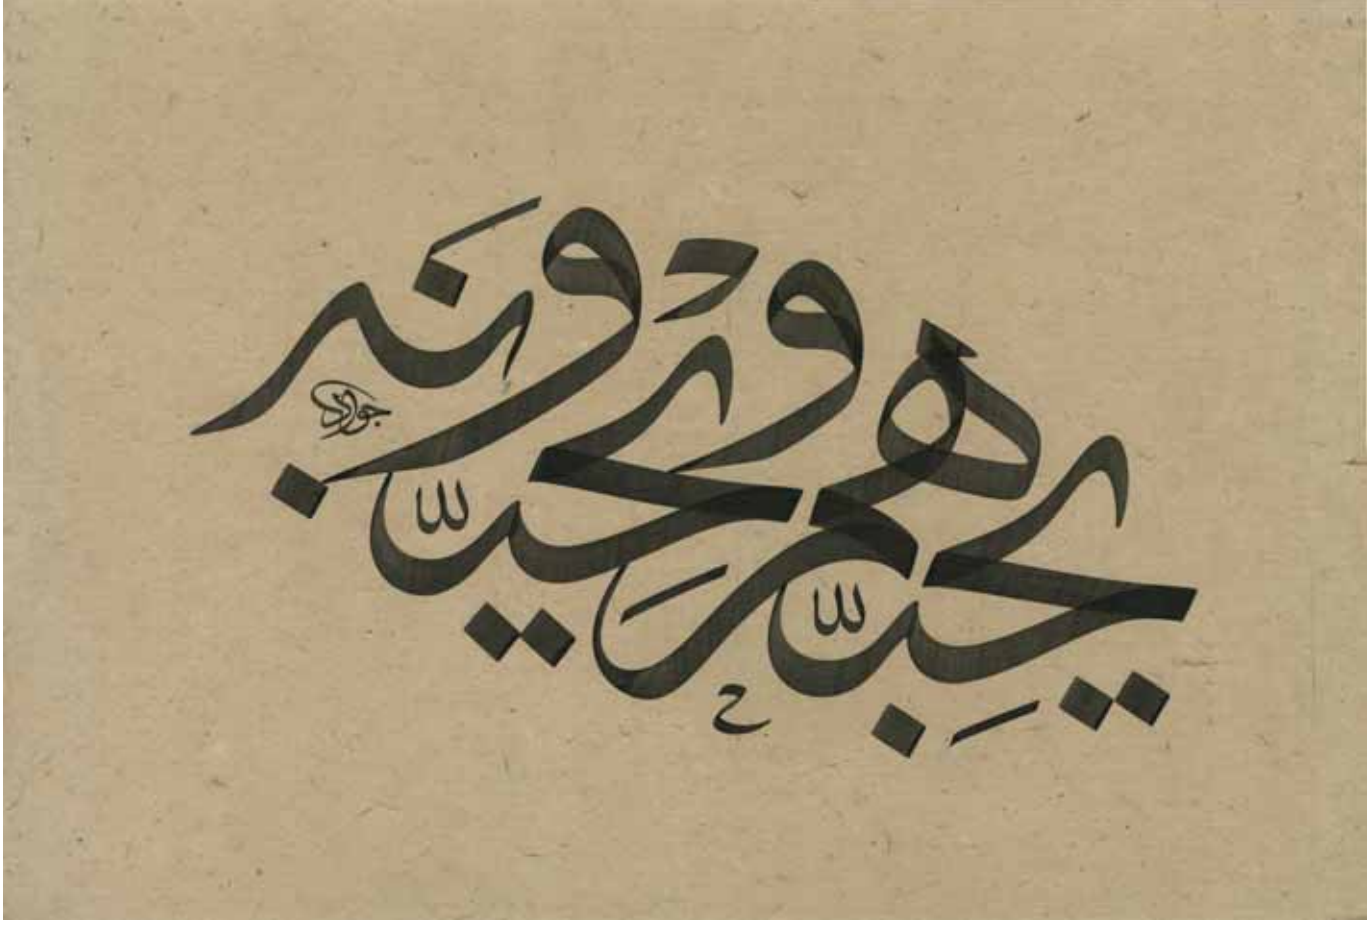 يحِبّهم وَيحبّونَه
جواد